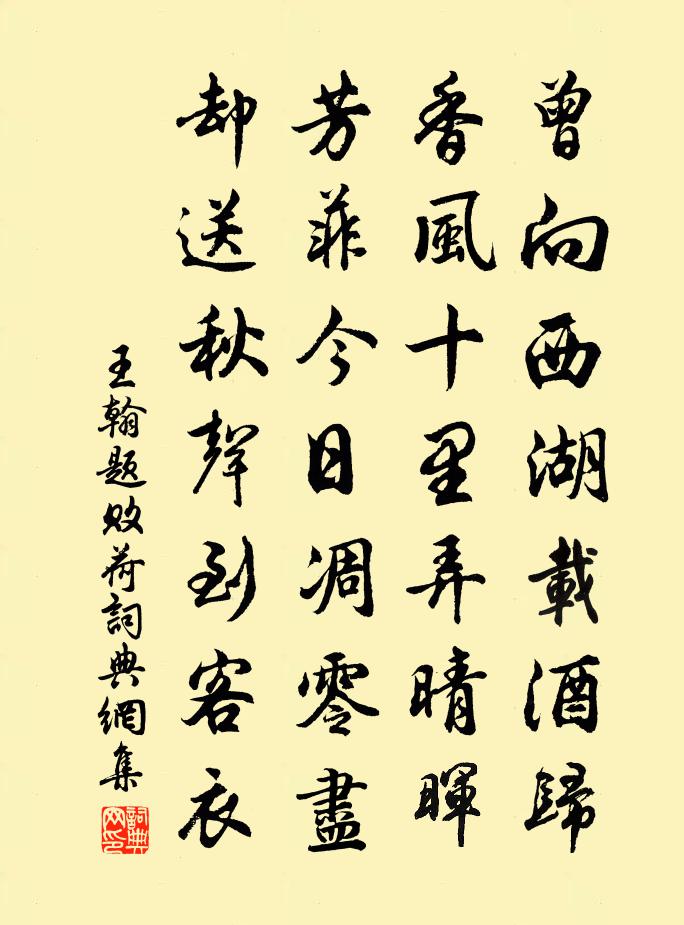 曾向西湖載酒歸
香風十里弄晴暉
芳菲今日凋零盡
却送秋聲到客衣
王翰題敗荷詞典網集
詞典网印